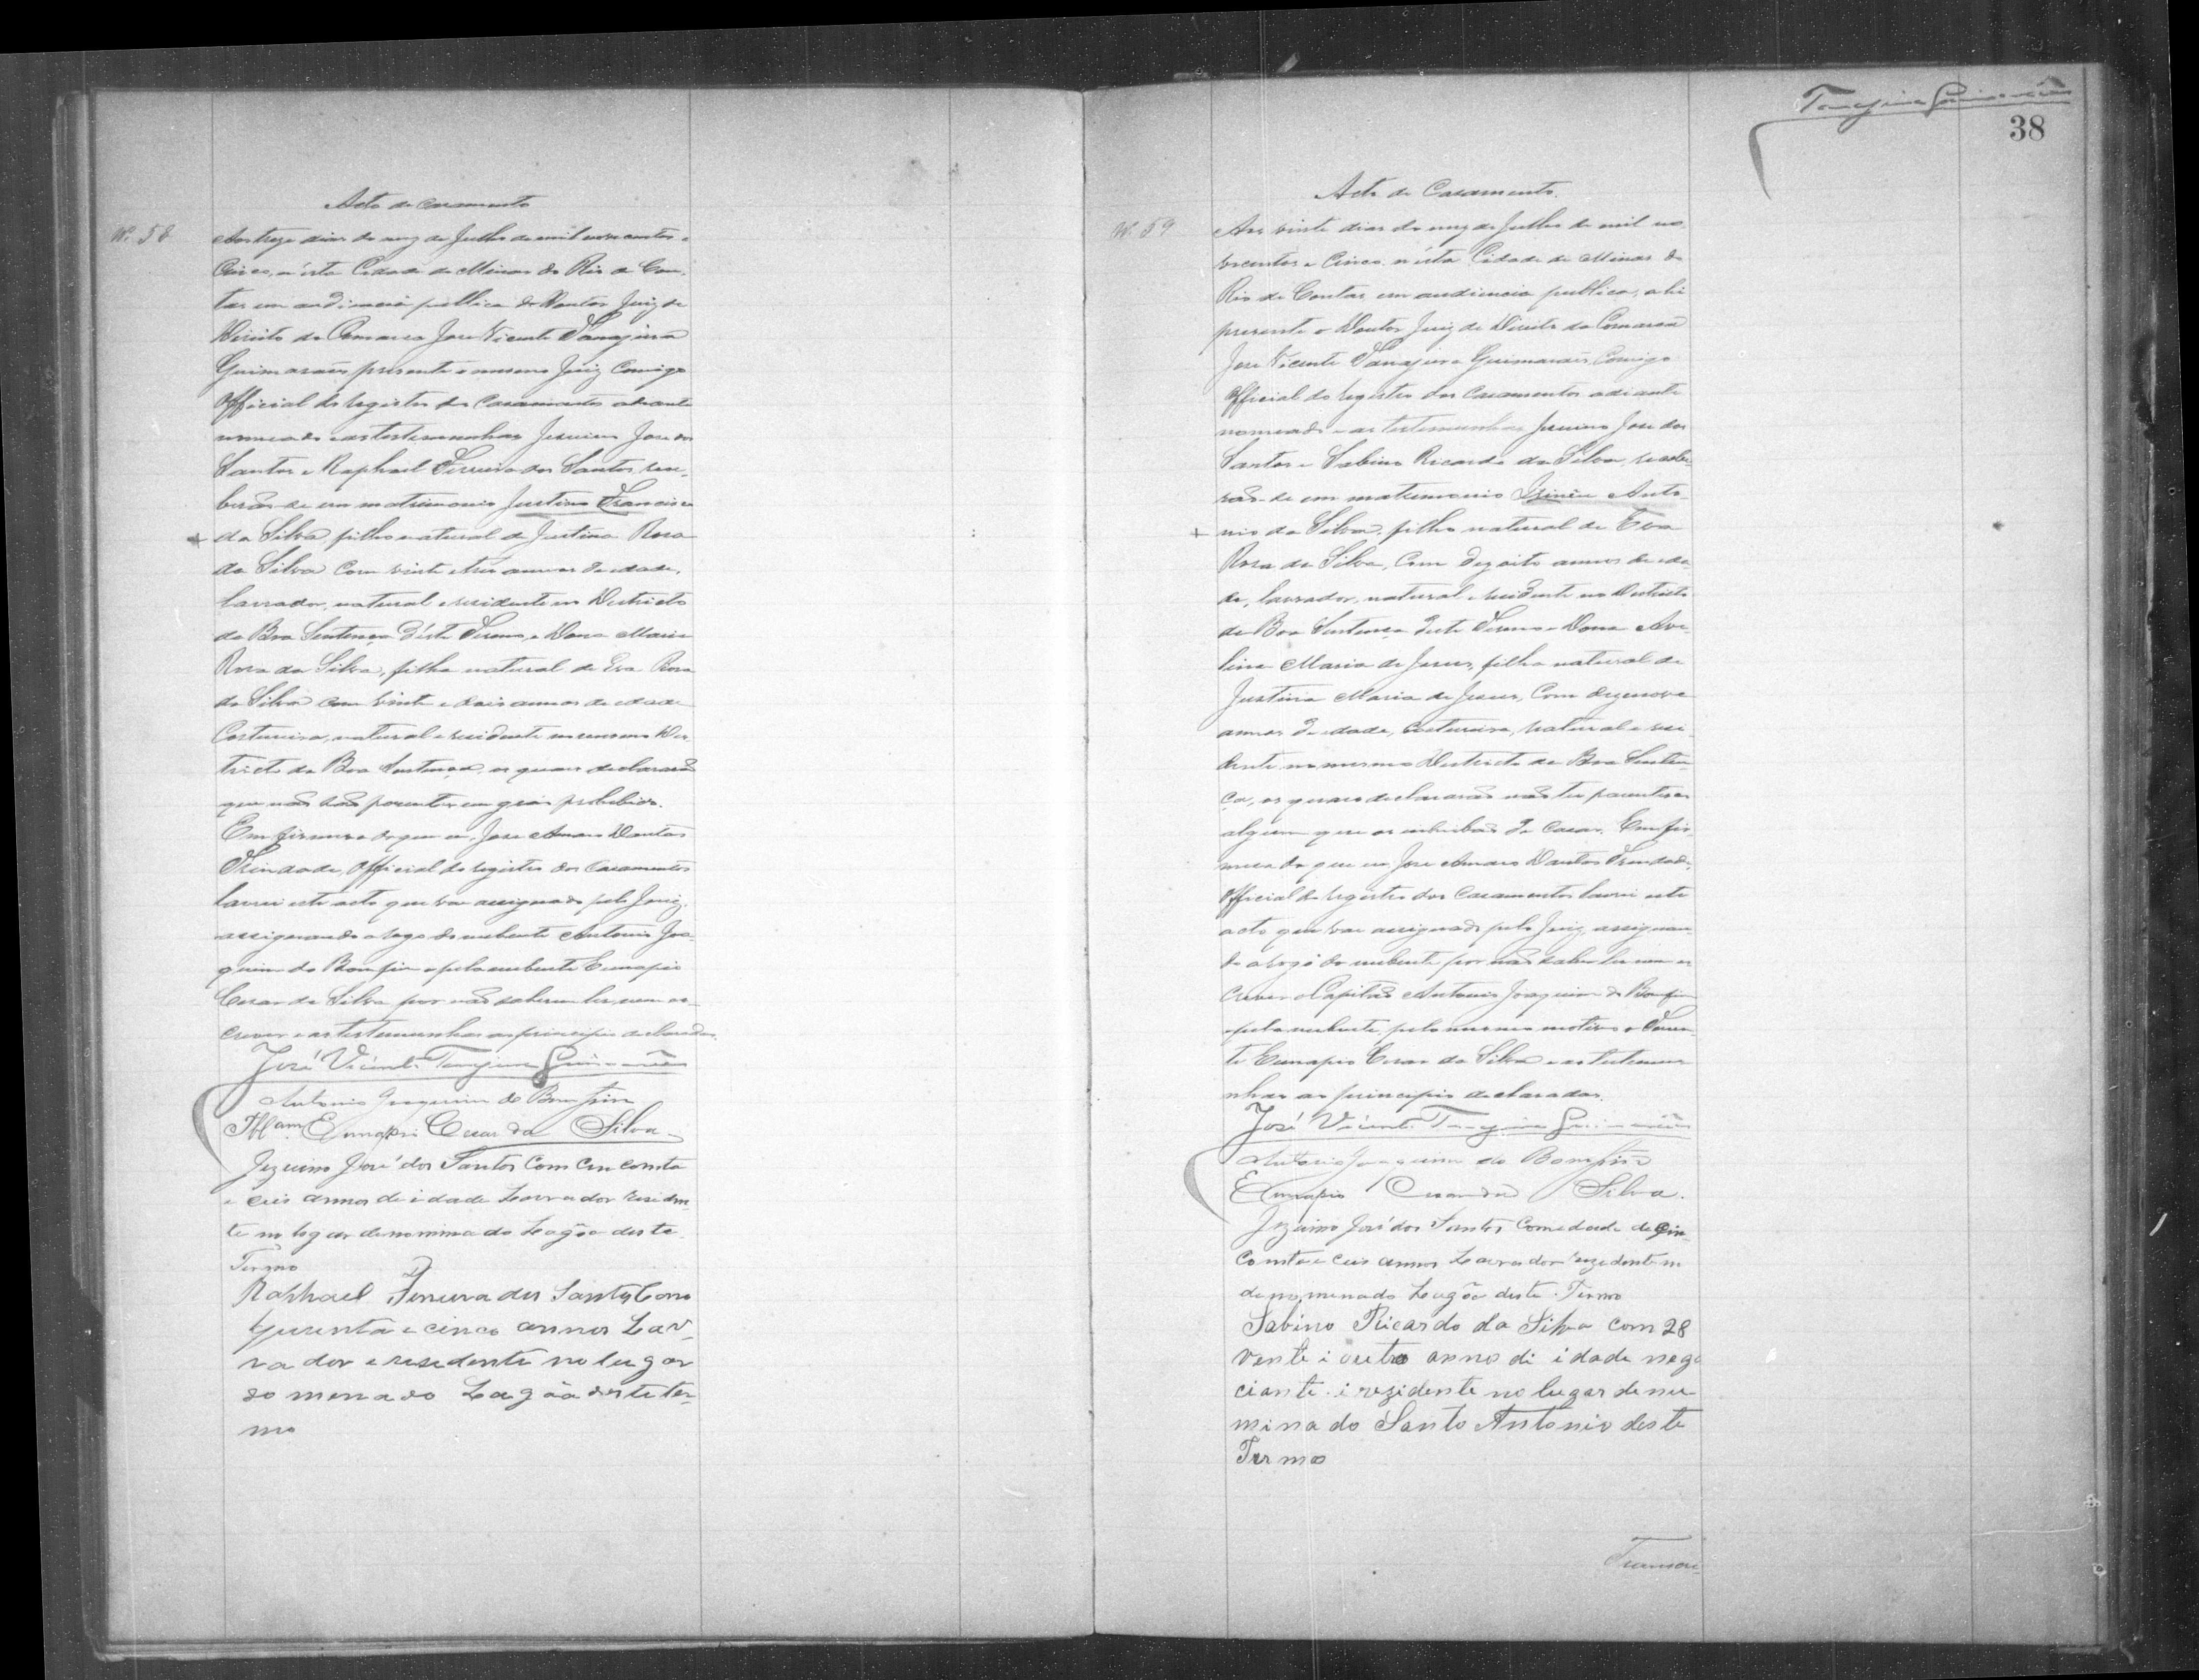 Acto de casamento
Nº 58
Aos treze dias do mez de Julho de mil novecentos e
Cinco, n'ésta Cidade de Minas do Rio de Con-
tas em audiencia publica do Doutor Juiz de
Direito da Comarca José Vicente Tanajura
Guimarães presente o mesmo Juiz Comigo
Official do registro dos Casamentos adiante
nomeado e as testemunhas Jesuino José dos
Santos e Raphael Ferreira dos Santos, rece-
berão-se em matrimonio Justino Francisco
da Silva, filho natural de Justina Rosa
da Silva com vinte e tres annos de idade,
lavrador, natural e residente no Destricto
da Boa Sentença d'éste Termo, e Dona Maria
Rosa da Silva, filha natural de Eva Rosa
da Silva com vinte e dois annos de edade
Costureira, natural e residente no mesmo Des-
tricto da Boa Sentença, os quaes declararão
que não são parentes em gráo prohibido.
Em firmeza do que eu, José Amaro Dantas
Trindade, Official do registro dos Casamentos
lavrei este acto que vae assignado pelo Juiz,
assignando a rogo do nubente Antonio Joa-
quim do Bomfim e pela nubente Eunapio
Cesar da Silva por não saberem ler, nem es-
crever e as testemunhas ao principio declaradas.
José Vicente Tanajura Guimarães
Antonio Joaquim do Bomfim
Eunapio Cesar da Silva
Jezuino José dos Santos Com Cincoenta
e ceis annos de idade Lavrador residen
te no logar denominado Lagôa deste
Termo
Raphael Ferreira dos Santos Com
qurenta e cinco annos Lav-
rador e residente no lugar
do menado Lagôa deste ter-
mo
Tanajura Guimarães
38
Acto de Casamento.
Nº 59
Aos vinte dias do mez de Julho de mil no-
vecentos e Cinco. n'ésta Cidade de Minas do
Rio de Contas em audiencia publica, ahi
presente o Doutor Juiz de Direito da Comarca
José Vicente Tanajura Guimarães, Comigo
Official do registro dos Casamentos adiante
nomeado e as testemunhas Jesuino José dos
Santos e Sabino Ricardo da Silva, recebe-
rão-se em matrimonio Irinêu Anto-
nio da Silva, filho natural de Eva
Rosa da Silva, Com dezoito annos de eda-
de, lavrador, natural e residente no Destricto
da Boa Sentença deste Termo e Dona Ave-
lina Maria de Jesus, filha natural de
Justina Maria de Jesus, Com dezenove
annos de edade, Costureira, natural e resi-
dente no mesmo Destricto da Boa Senten-
ça, os quaes declararão não ter parentesco
algum que os inhibão de casar. Em fir-
meza do que eu, José Amaro Dantas Trindade,
Official do registro dos Casamentos lavrei este
acto que vae assignado pelo Juiz, assignan-
do a rogo do nubente por não saber ler nem es
crever o Capitão Antonio Joaquim do Bomfim
e pela nubente, pelo mesmo motivo o Tenen-
te Eunapio Cesar da Silva e as testemu-
nhas ao principio declaradas.
José Vicente Tanajura Guimarães
Antonio Joaquim do Bomfim
Eunapio Cesar da Silva.
Jezuino José dos Santos Com edade de Cin-
coenta e ceis annos Lavrador rezidente no
denominado Lagôa deste Termo
Sabino Ricardo da Silva com 28
vente i outro annos di idade nego
ciante i rezidente no lugar denu-
minado Santo Antonio deste
Termo